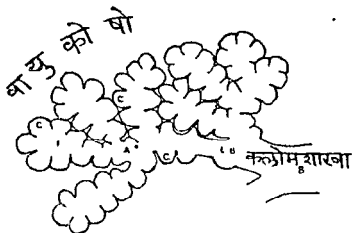 वायु कोषो
C
C
A
C
B
क्लोम शाखा
B